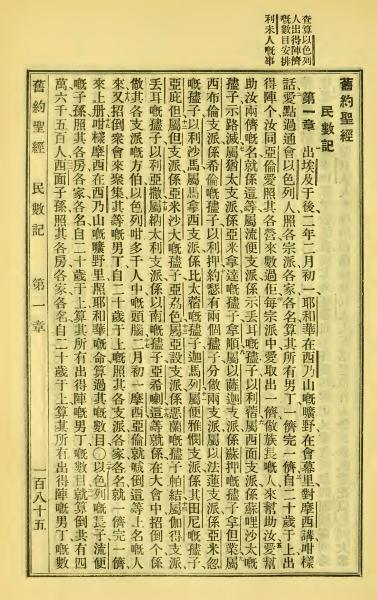 查算以色列
人出得陣嘅
嘅數目安排
利未人嘅事
舊約聖經
民數記
第一章 出埃及于後二年二月初一耶和華在西乃山嘅曠野在會幕里對摩西講咁樣
話愛點過通會以色列人照各宗派各家各名算其所有男丁一儕完一儕自二十歲于上出
得陣个汝同亞倫愛照其各營來數過佢每宗派中愛取出一儕做族長嘅人來幫助汝愛幫
助汝兩儕嘅名就係這等屬流便支派係示丟耳嘅孻子以利蓿屬西面支派係蘇哩沙大嘅
孻子示路滅屬猶太支派係亞米拿達嘅孻子拿順屬以薩迦支派係蘇押嘅孻子拿但業屬
西布倫支派係希倫嘅孻子以利押約瑟有兩個孻子分做兩支派屬以法蓮支派係亞米忽
嘅孻子以利沙馬屬馬拿西支派係比太蓿嘅孻子迦馬列屬便雅憫支派係其田尼嘅孻子
亞庇但屬但支派係亞米沙大嘅孻子亞希色屬亞設支派係惡蘭嘅孻子帕結屬伽得支派
丟耳嘅孻子以利亞撒屬納大利支派係以南嘅孻子亞希喇這等就係在大會中招倒个係
做其各支派嘅方伯以色列咁多千人中嘅頭腦二月初一摩西亞倫就喊倒這等上名嘅人
來又招倒衆會來聚集其等嘅男丁自二十歲于上嘅照其各支派各家各名就一儕完一儕
來上册咁樣摩西在西乃山嘅曠野里照耶和華嘅命算過其嘅數目○以色列嘅長子流便
嘅子孫照其各房各家各名自二十歲于上算其所有出得陣嘅男丁嘅數目就算倒共有四
萬六千五百人西面子孫照其各房各家各名自二十歲于上算其所有出得陣嘅男丁嘅數
舊約聖經 民數記 第一章 一百八十五